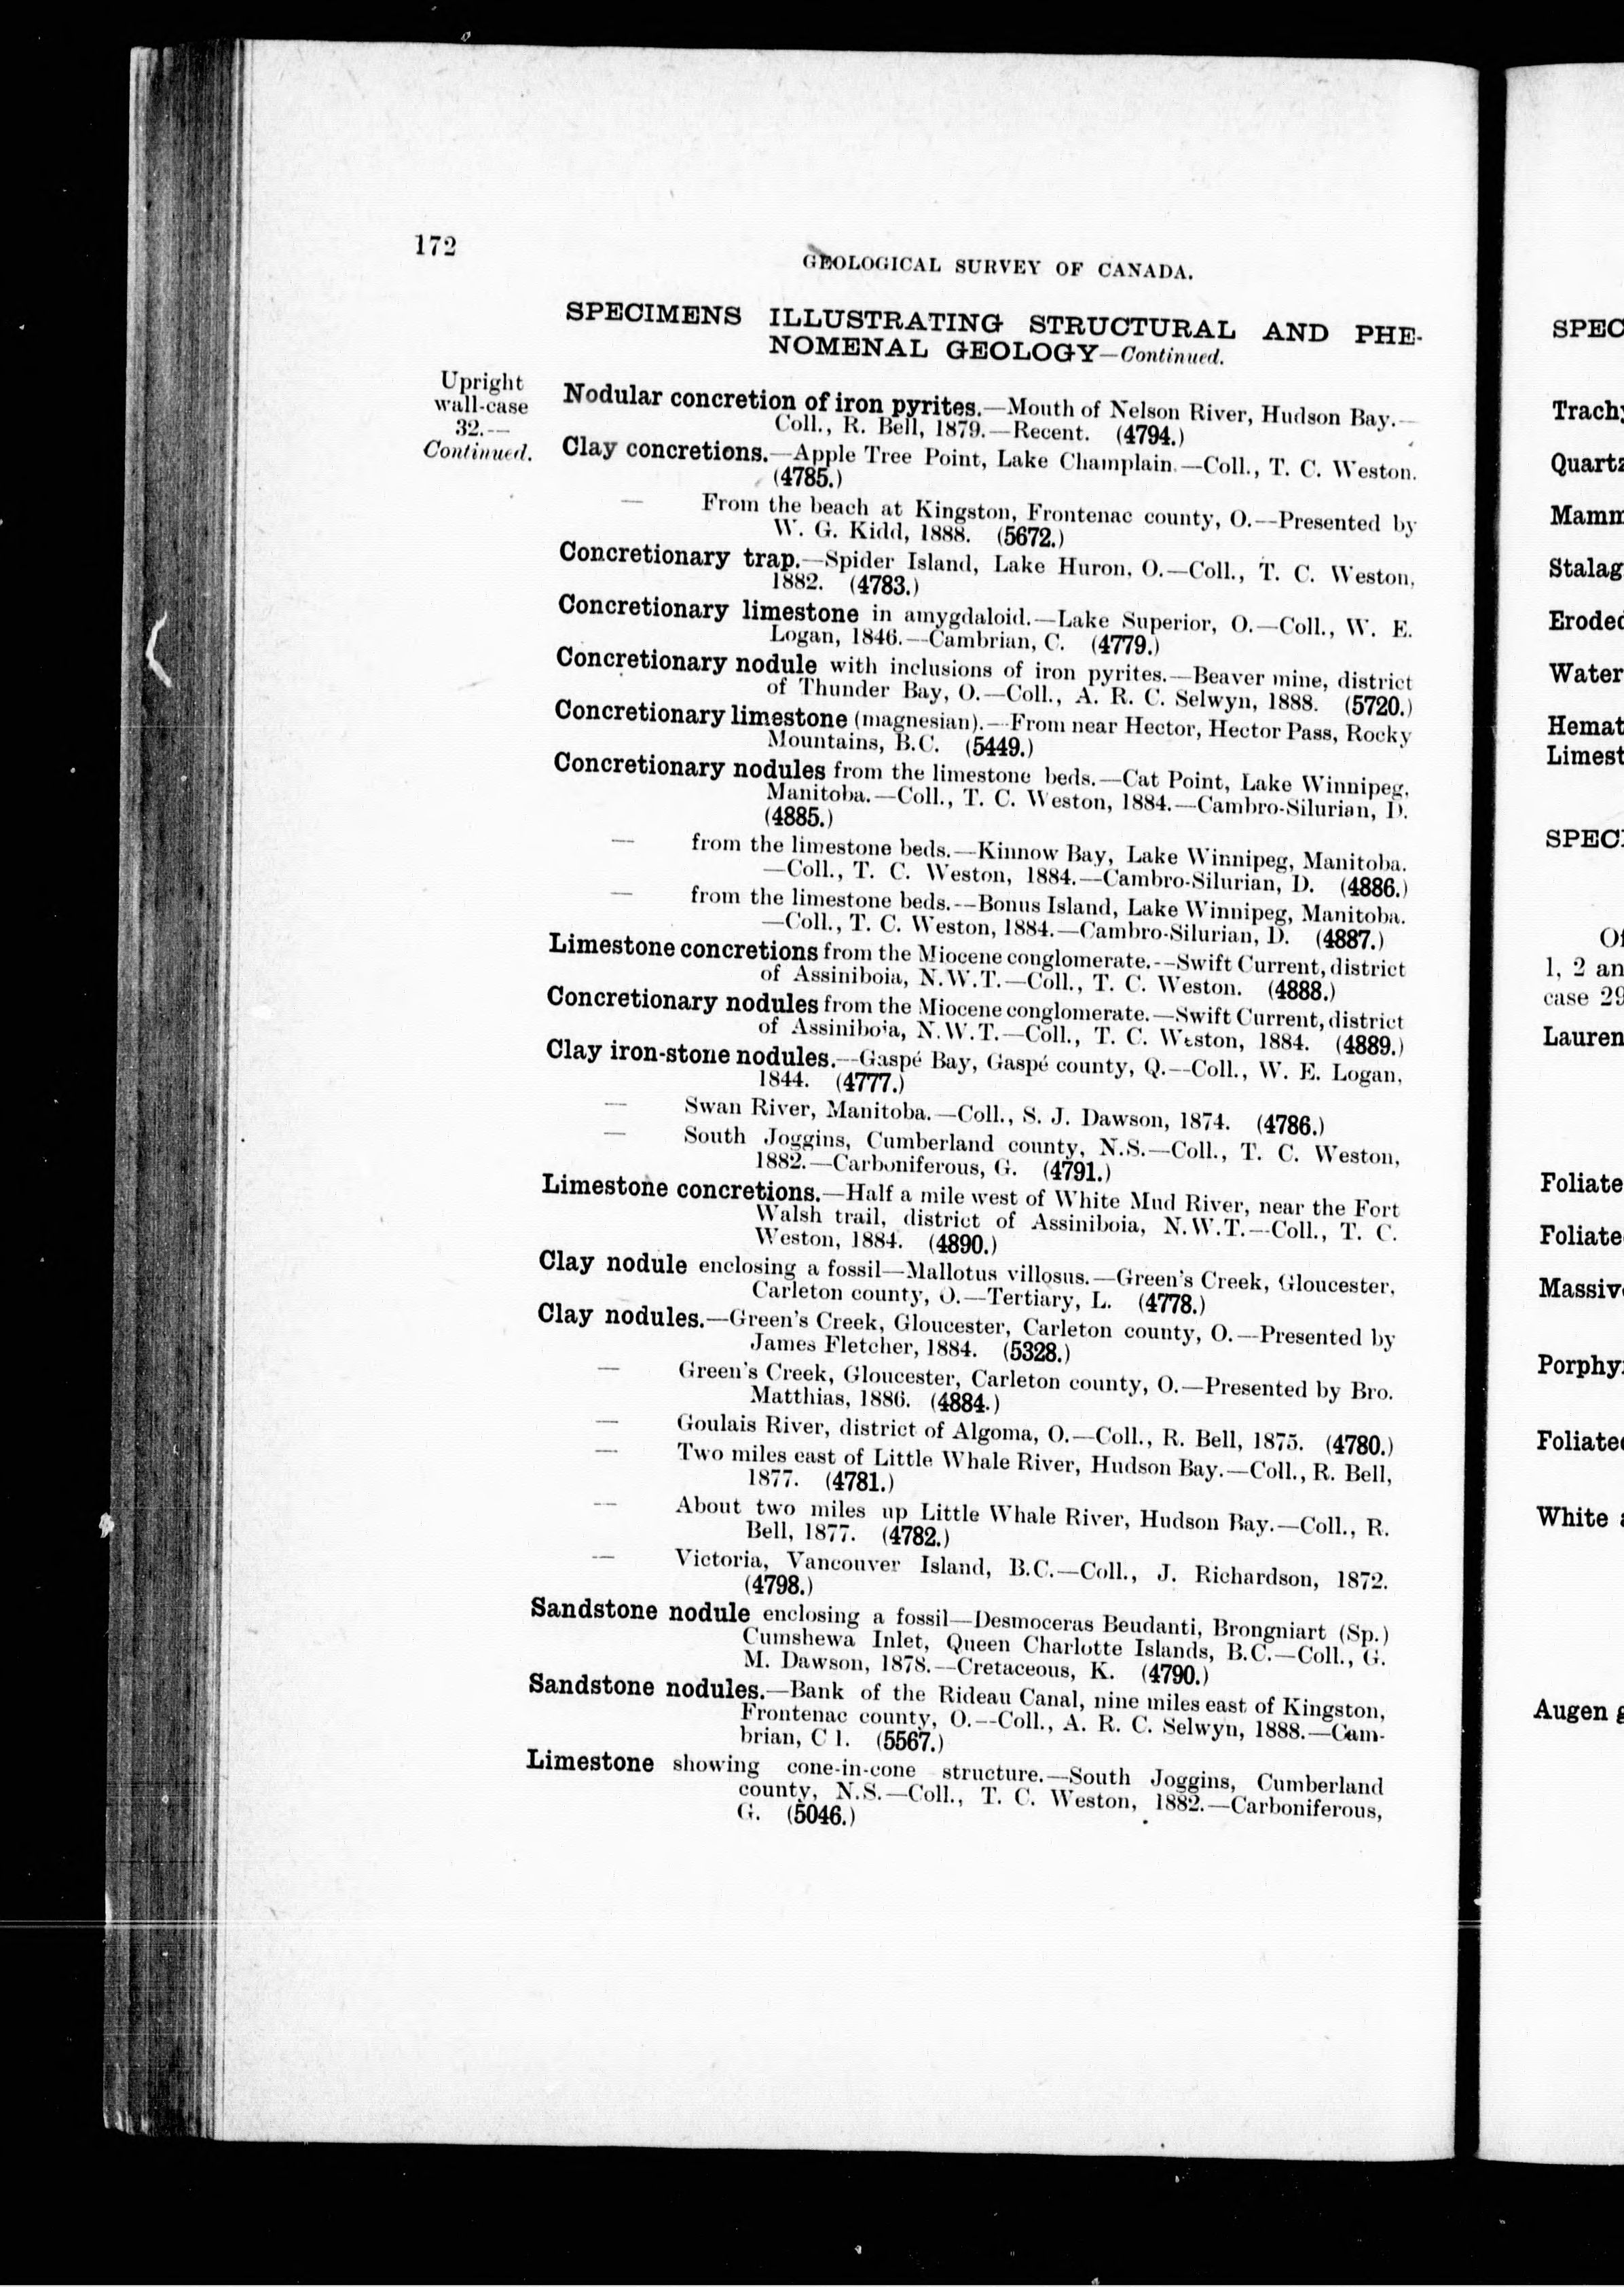 172
GEOLOGICAL SURVEY OF CANADA.
SPECIMENS ILLUSTRATING STRUCTURAL AND PHE-
NOMENAL GEOLOGY—Continued.
Upright
wall-case
32.—
Continued.
Nodular concretion of iron pyrites.—Mouth of Nelson River, Hudson Bay.—
Coll., R. Bell, 1879.—Recent. (4794.)
Clay concretions.—Apple Tree Point, Lake Champlain.—Coll., T. C. Weston.
(4785.)
— From the beach at Kingston, Frontenac county, O.—Presented by
W. G. Kidd, 1888. (5672.)
Concretionary trap.—Spider Island, Lake Huron, O.—Coll., T. C. Weston,
1882. (4783.)
Concretionary limestone in amygdaloid.—Lake Superior, O.—Coll., W. E.
Logan, 1846.—Cambrian, C. (4779.)
Concretionary nodule with inclusions of iron pyrites.—Beaver mine, district
of Thunder Bay, O.—Coll., A. R. C. Selwyn, 1888. (5720.)
Concretionary limestone (magnesian).—From near Hector, Hector Pass, Rocky
Mountains, B.C. (5449.)
Concretionary nodules from the limestone beds.—Cat Point, Lake Winnipeg,
Manitoba.—Coll., T. C. Weston, 1884.—Cambro-Silurian, D.
(4885.)
— from the limestone beds.—Kinnow Bay, Lake Winnipeg, Manitoba.
—Coll., T. C. Weston, 1884.—Cambro-Silurian, D. (4886.)
— from the limestone beds.—Bonus Island, Lake Winnipeg, Manitoba.
—Coll., T. C. Weston, 1884.—Cambro-Silurian, D. (4887.)
Limestone concretions from the Miocene conglomerate.—Swift Current, district
of Assiniboia, N.W.T.—Coll., T. C. Weston. (4888.)
Concretionary nodules from the Miocene conglomerate.—Swift Current, district
of Assiniboia, N.W.T.—Coll., T. C. Weston, 1884. (4889.)
Clay iron-stone nodules.—Gaspé Bay, Gaspé county, Q.—Coll., W. E. Logan,
1844. (4777.)
— Swan River, Manitoba.—Coll., S. J. Dawson, 1874. (4786.)
— South Joggins, Cumberland county, N.S.—Coll., T. C. Weston,
1882.—Carboniferous, G. (4791.)
Limestone concretions.—Half a mile west of White Mud River, near the Fort
Walsh trail, district of Assiniboia, N.W.T.—Coll., T. C.
Weston, 1884. (4890.)
Clay nodule enclosing a fossil—Mallotus villosus.—Green's Creek, Gloucester,
Carleton county, O.—Tertiary, L. (4778.)
Clay nodules.—Green's Creek, Gloucester, Carleton county, O.—Presented by
James Fletcher, 1884. (5328.)
— Green's Creek, Gloucester, Carleton county, O.—Presented by Bro.
Matthias, 1886. (4884.)
— Goulais River, district of Algoma, O.—Coll., R. Bell, 1875. (4780.)
— Two miles east of Little Whale River, Hudson Bay.—Coll., R. Bell,
1877. (4781.)
— About two miles up Little Whale River, Hudson Bay.—Coll., R.
Bell, 1877. (4782.)
— Victoria, Vancouver Island, B.C.—Coll., J. Richardson, 1872.
(4798.)
Sandstone nodule enclosing a fossil—Desmoceras Beudanti, Brongniart (Sp.)
Cumshewa Inlet, Queen Charlotte Islands, B.C.—Coll., G.
M. Dawson, 1878.—Cretaceous, K. (4790.)
Sandstone nodules.—Bank of the Rideau Canal, nine miles east of Kingston,
Frontenac county, O.—Coll., A. R. C. Selwyn, 1888.—Cam-
brian, C 1. (5567.)
Limestone showing cone-in-cone structure.—South Joggins, Cumberland
county, N.S.—Coll., T. C. Weston, 1882.—Carboniferous,
G. (5046.)
SPEC
Trach
Quartz
Mamm
Stalag
Eroded
Water
Hemat
Limest
SPEC
Of
1, 2 an
case 29
Lauren
Foliate
Foliate
Massiv
Porphy
Foliate
White
Augen